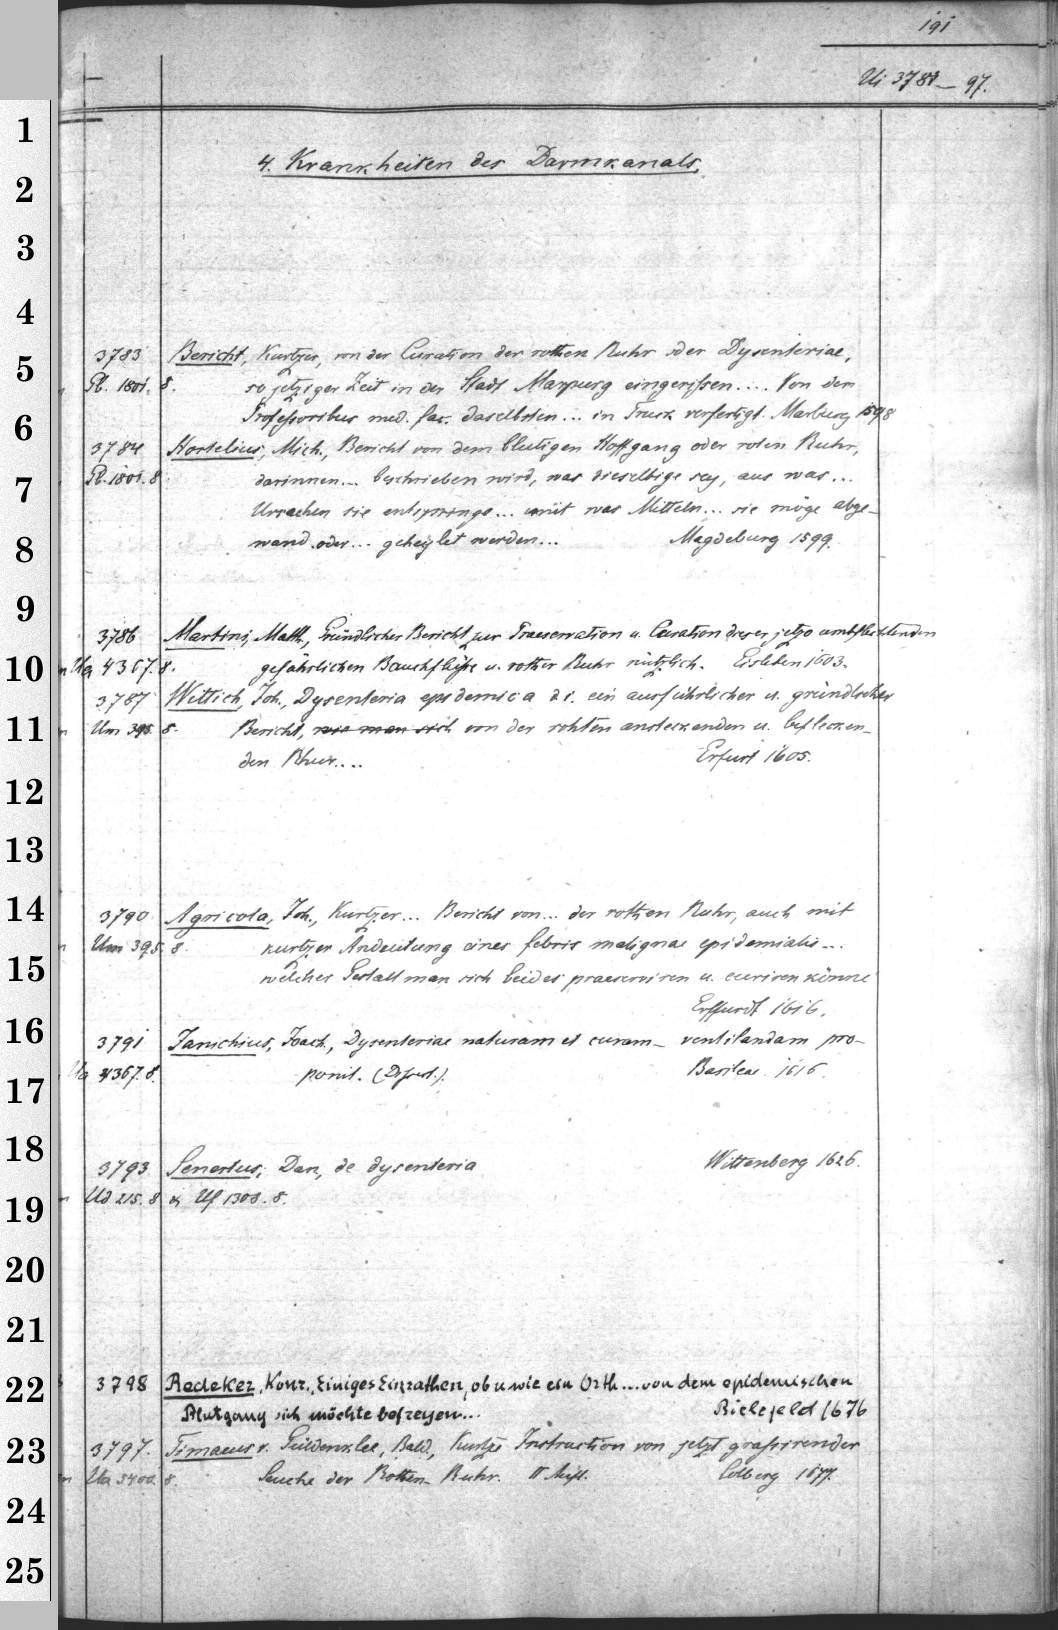 191
Ui 3783 — 97.
4. Krankheiten des Darmkanals.
3783 Bericht, Kurtzer, von der Curation der rothen Ruhr oder Dysenteriae,
Pl. 1801. 8. so jetziger Zeit in der Stadt Marpurg eingerissen .... Von den
Professoribus med. fac. daselbsten ... in Truck verfertigt. Marburg 1598
3784 Hortelius, Mich., Bericht von dem blutigen Hoffgang oder roten Ruhr,
Pl. 1801. 8. darinnen ... beschrieben wird, was dieselbige sey, aus was ...
Ursachen sie entspringe ... mit was Mitteln ... sie möge abge-
wand oder ... geheylet werden ... Magdeburg 1599.
3786 Martini, Matth., Gründlicher Bericht zur Praeservation u. Curation dieser jetzo umbflechtenden
Ua 4367. 8. gefährlichen Bauchflüsse u. rother Ruhr nützlich. Eisleben 1603.
3787 Wittich, Joh., Dysenteria epidemica d. i. ein ausführlicher u. gründlicher
Um 395. 8. Bericht, wie man sich von der rohten ansteckenden u. beflecken-
den Rhur .... Erfurt 1605.
3790 Agricola, Joh., Kurtzer ... Bericht von ... der rothen Ruhr, auch mit
Um 395. 8. kurtzer Andeutung eines febris malignae epidemialis ...
welcher Gestalt man sich beides praeserviren u. curiren könne
Erffurdt 1616.
3791 Janichius, Joach., Dysenteriae naturam et curam — ventilandam pro-
Ua 4367. 8. ponit. (Dissert.). Basileae 1616.
3793 Senertus, Dan., de dysenteria Wittenberg 1626.
Ud 215. 8 & Uf 1308. 8.
3798 Redeker, Konr., Einiges Einrathen, ob u wie ein Orth ... von dem epidemischen
Blutgang sich möchte befreyen ... Bielefeld 1676
3797. Timaeus v. Güldenklee, Bald., Kurtze Instruction von jetzt grassirender
Ua 3400. 8. Seuche der Rothen Ruhr. II Aufl. Colberg 1677.